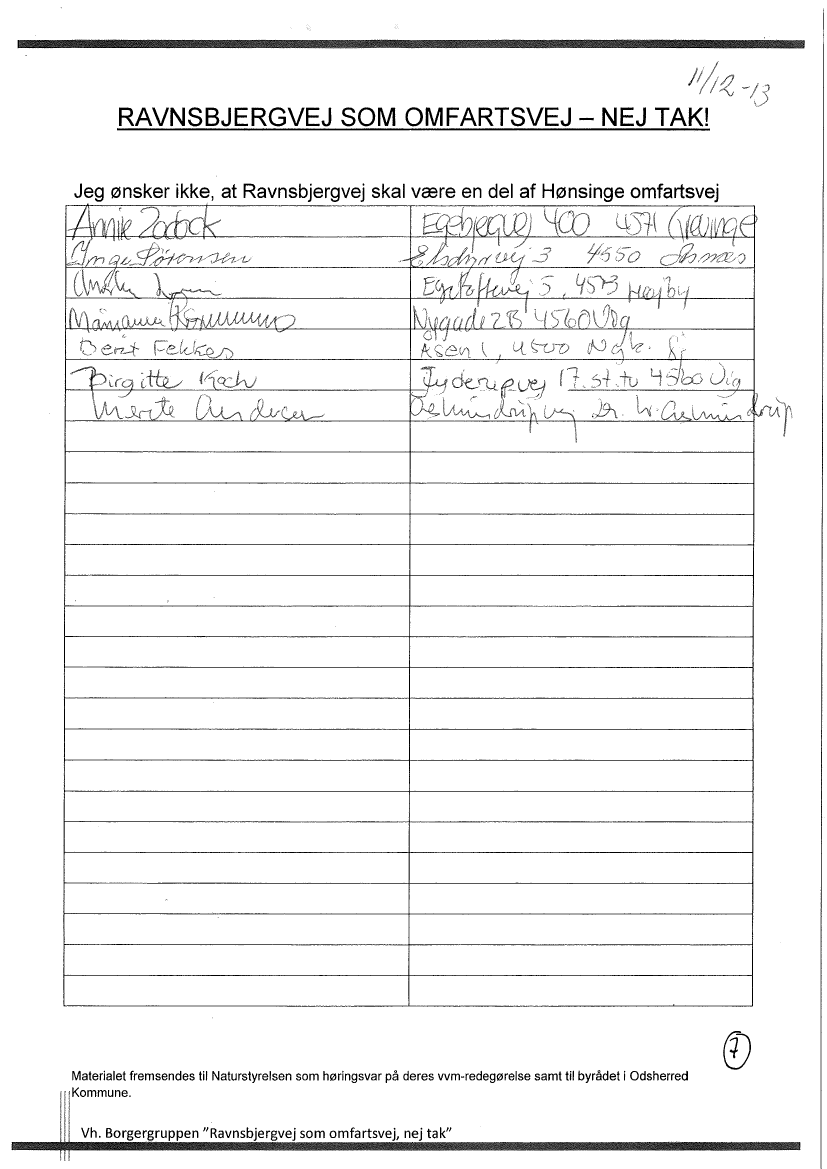 11/12-13
RAVNSBJERGVEJ SOM OMFARTSVEJ – NEJ TAK!
Jeg ønsker ikke, at Ravnsbjergvej skal være en del af Hønsinge omfartsvej
Annie Egebjergvej 400 4571 Grevinge
Inge Sørensen Elsdyrvej 3 4550 Asnæs
5, 4573 Højby
Marianne Nygade 2B 4560 Vig
Berit Fekkes Åsen 1, 4500 Nyk. Sj
Birgitte Koch Jyderupvej 17. st. tv 4560 Vig
Merete Andersen
7
Materialet fremsendes til Naturstyrelsen som høringsvar på deres vvm-redegørelse samt til byrådet i Odsherred
Kommune.
Vh. Borgergruppen ”Ravnsbjergvej som omfartsvej, nej tak”